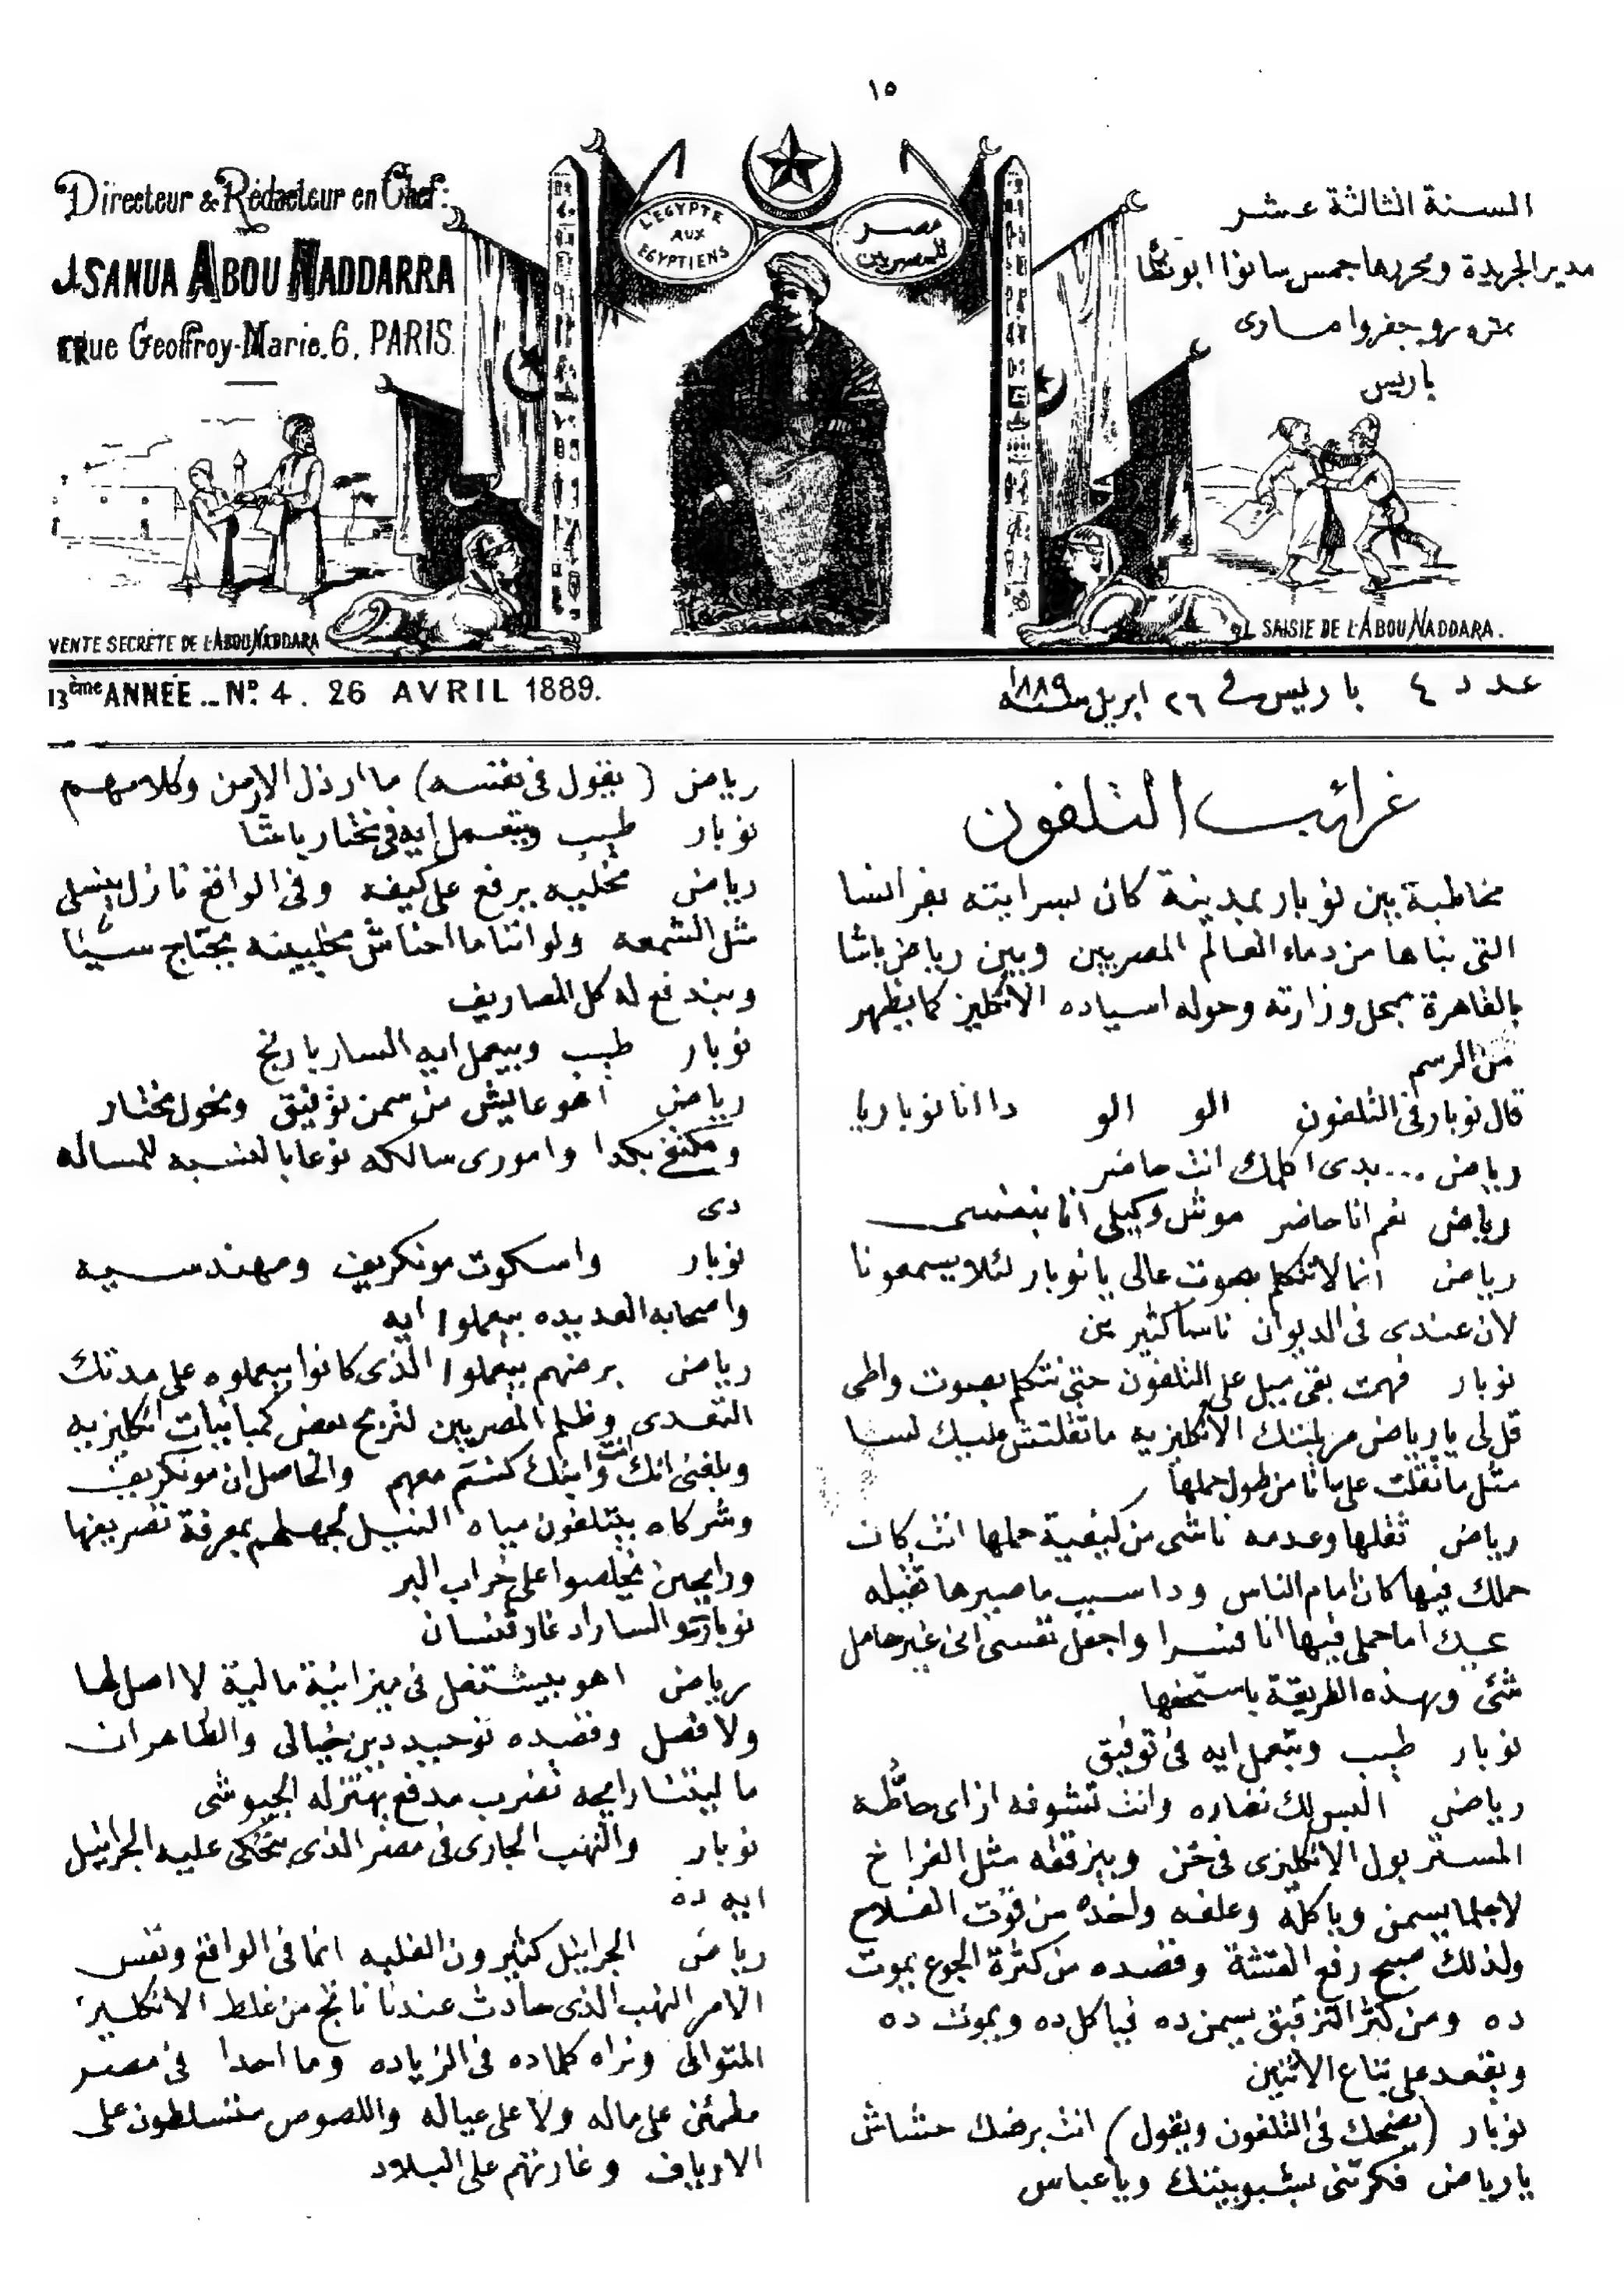 ١٥
Directeur & Rédacteur en Chef:
J SANUA ABOU NADDARRA
rue Geoffroy-Marie. 6, PARIS.
L'EGYPTE
AUX
EGYPTIENS
مصر
للمصريين
السنة الثالثة عشر
مدير الجريدة ومحررها جمس سانوا ابو نظا
رو جفروا مارى
باريس
VENTE SECRÈTE DE L'ABOU NADDARA
SAISIE DE L'ABOU NADDARA.
13ème ANNÉE _ No. 4. 26 AVRIL 1889.
عدد ٤ باريس فى ٢٦ ابريل سنة ١٨٨٩
غرائب التلفون
مخاطبة بين نوبار بمدينة كان بسرايته بفرانسا
التى بناها من دماء العالم المصريين وبين رياض باشا
بالقاهرة بمحل وزارته وحوله اسياده الانكليز كما يظهر
من الرسم
قال نوبار فى التلفون الو الو دا انا نوبار يا
رياض ... بدى اكلمك انت حاضر
رياض نعم انا حاضر موش وكيلى انا بنفسى
رياض انما لا تتكلم بصوت عالى يا نوبار لئلا يسمعونا
لان عندى فى الديوان ناسا كثيرين
نوبار فهمت بقى ميل على التلفون حتى نتكلم بصوت واطى
قل لى يا رياض مريلتك الانكليزيه ما تقلتش عليك لسا
مثل ما تقلت على يانا من طول حملها
رياض ثقلها وعدمه ناشى من كيفية حملها انت كان
حملك فيها كان امام الناس ودا سبب ما صيرها تقيله
عليك اما حملى فيها انا فسرا واجعل نفسى انى غير حامل
شئ وبهذه الطريقة باستخفها
نوبار طيب وبتعمل ايه فى توفيق
رياض البس لك نضاره وانت تشوفه ازاى حاطه
المستر بول الانكليزى فى خن وبيزققه مثل الفراخ
لاجلما يسمن وياكله وعلفه واخده من قوت الفلاح
ولذلك صبح رفع القشة وقصده من كثرة الجوع يموت
ده ومن كثر التزقيق يسمن ده فياكل ده ويموت ده
ويقعد على بتاع الاثنين
نوبار (يضحك فى التلفون ويقول) انت برضك حشاش
يا رياض فكرتنى بشبوبيتك ويا عباس
رياض (يقول فى نفسه) ما ارذل الارمن وكلامهم
نوبار طيب وبتعمل ايه فى مختار باشا
رياض مخليه يرفع على كيفه وفى الواقع نازل بيسلى
مثل الشمعه ولو اننا ما احناش مخليينه يحتاج شيئا
وبندفع له كل المصاريف
نوبار طيب وبيعمل ايه السار يارنج
رياض اهو عايش من سمن توفيق ونحول مختار
ومكتفى بكدا وامورى سالكه نوعا بالنسبه للمساله
دى
نوبار واسكوت مونكريف ومهندسيه
واصحابه العديده بيعملوا ايه
رياض برضهم بيعملوا الذى كانوا بيعملوه على مدتك
التعدى وظلم المصريين لتربح بعض كمبانيات انكليزيه
وبلغنى انك انت وابنك كنتم معهم والحاصل ان مونكريف
وشركاه بيتلفون مياه النيل لجهلهم بمعرفة تصريفها
ورايحين يخلصوا على خراب البر
نوبار والسار ادغار فنسان
رياض اهو بيشتغل فى ميزانية مالية لا اصل لها
ولا فصل وقصده توحيد دين خيالى والظاهر ان
ما لينتنا رايحه تضرب مدفع يهتز له الجيوشى
نوبار والنهب الجارى فى مصر الذى بتحكى عليه الجرانيل
ايه ده
رياض الجرانيل كثيرون الغلبه انما فى الواقع ونفس
الامر النهب الذى حادث عندنا ناتج من غلط الانكليز
المتوالى ونراه كلماده فى الزياده وما احدا فى مصر
مطمئن على ماله ولا على عياله واللصوص متسلطون على
الارياف وغارتهم على البلاد